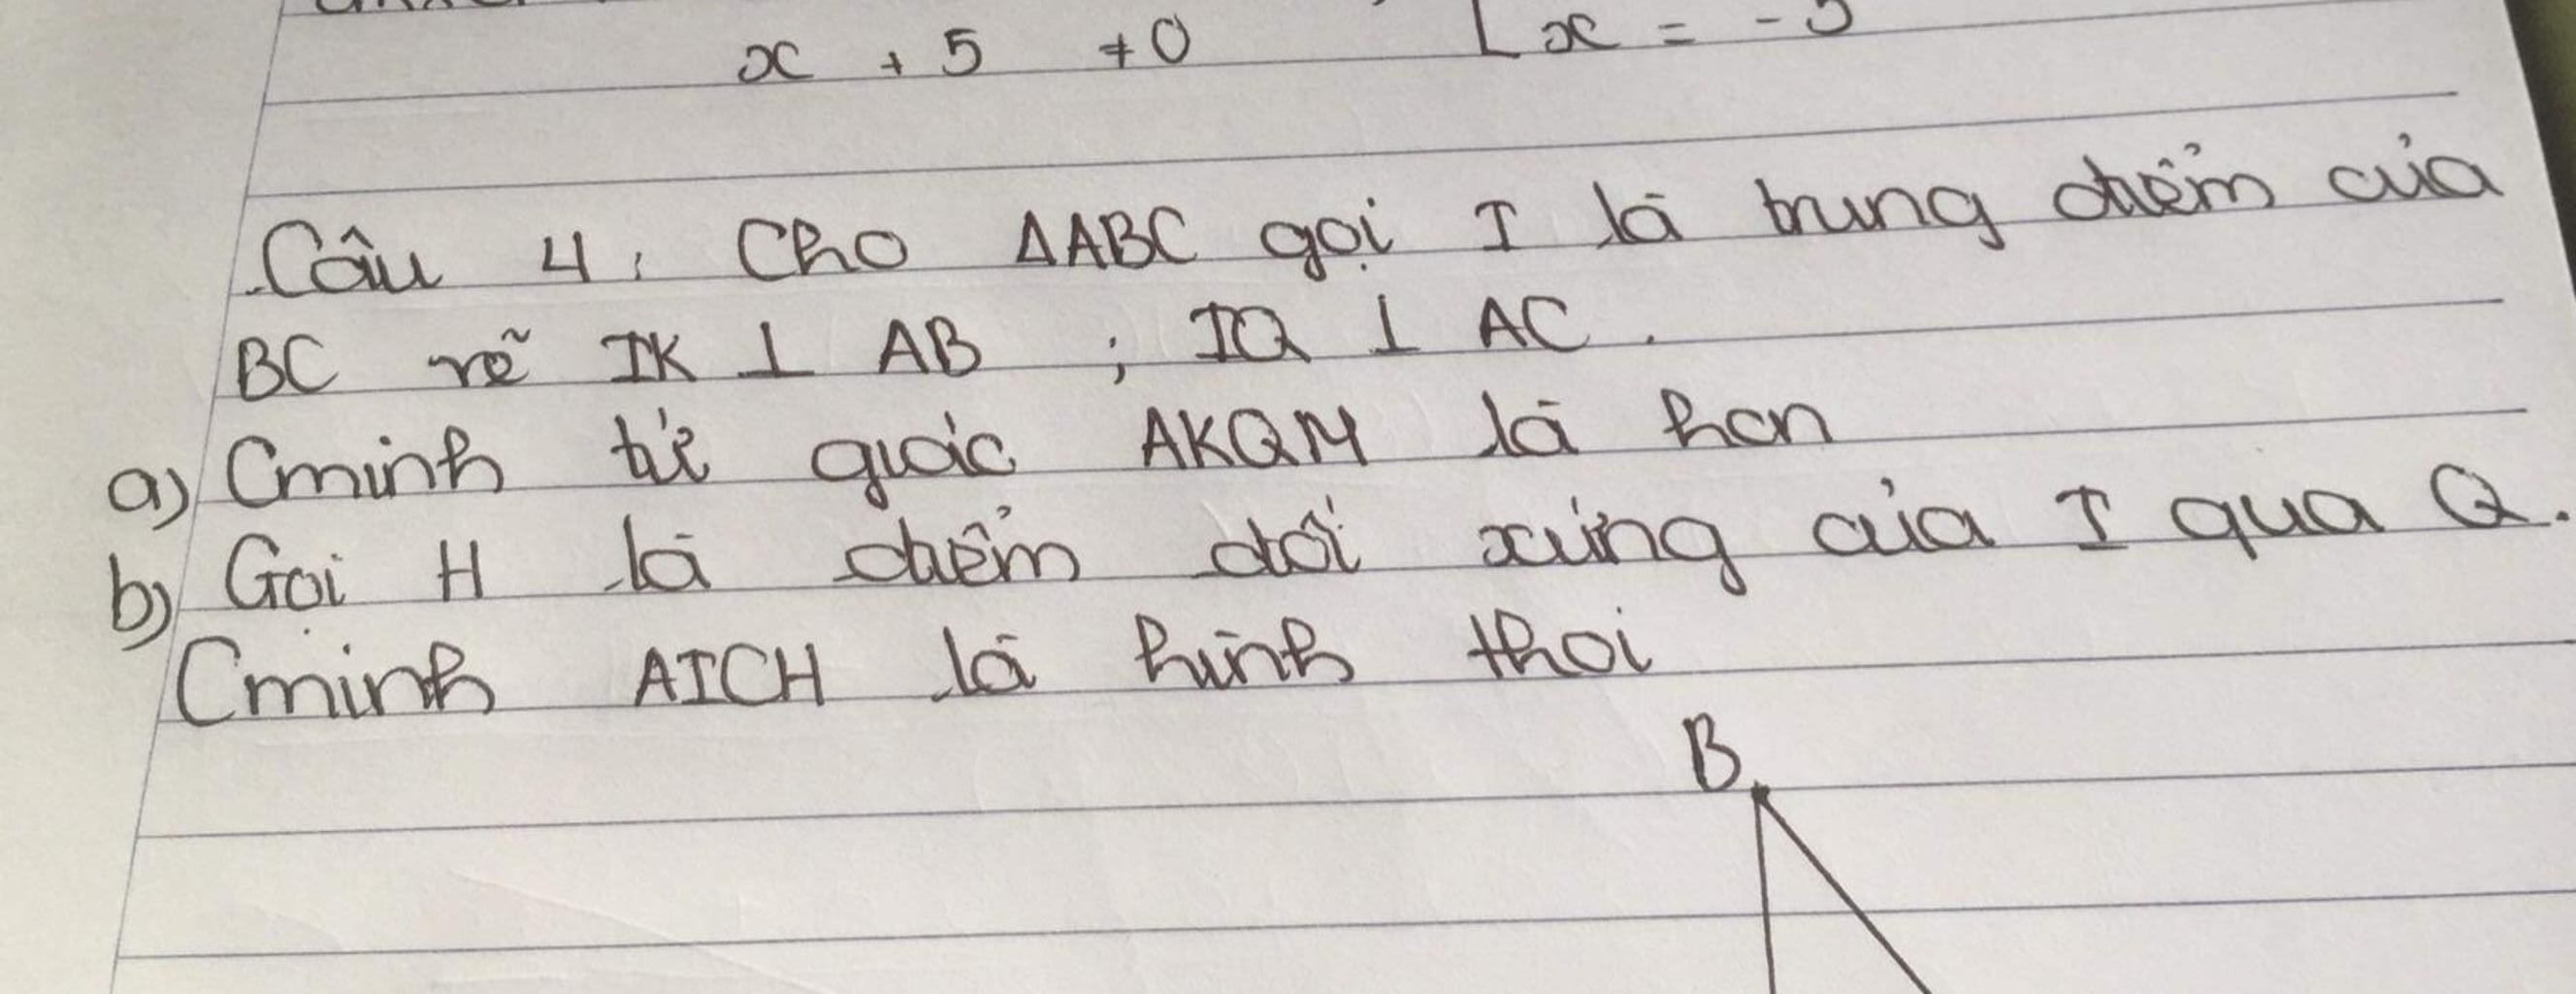 x + 5 ≠ 0 [ x = -5
Câu 4: Cho ΔABC gọi I là trung điểm của
BC vẽ IK ⊥ AB ; IQ ⊥ AC.
a) Cminh tứ giác AKQM là hcn
b) Gọi H là điểm đối xứng của I qua Q.
Cminh AICH là hình thoi
B